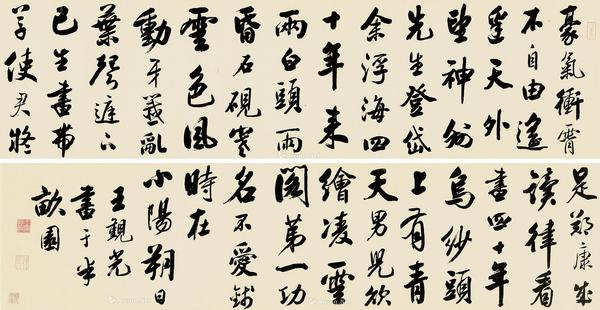 豪氣衝霄
不自由遙
天外
望神州
先生登岱
余浮海四
十年來
兩白頭雨
昏石硯寒
雲色風
動牙籤亂
葉聲庭下
已生書帶
草使君將
是鄭康成
讀律看
書四十年
烏紗頭
上有青
天男兒欲
繪凌雲
閣第一功
名不愛錢
時在
小陽朔日
王覲光
書于半
畝園